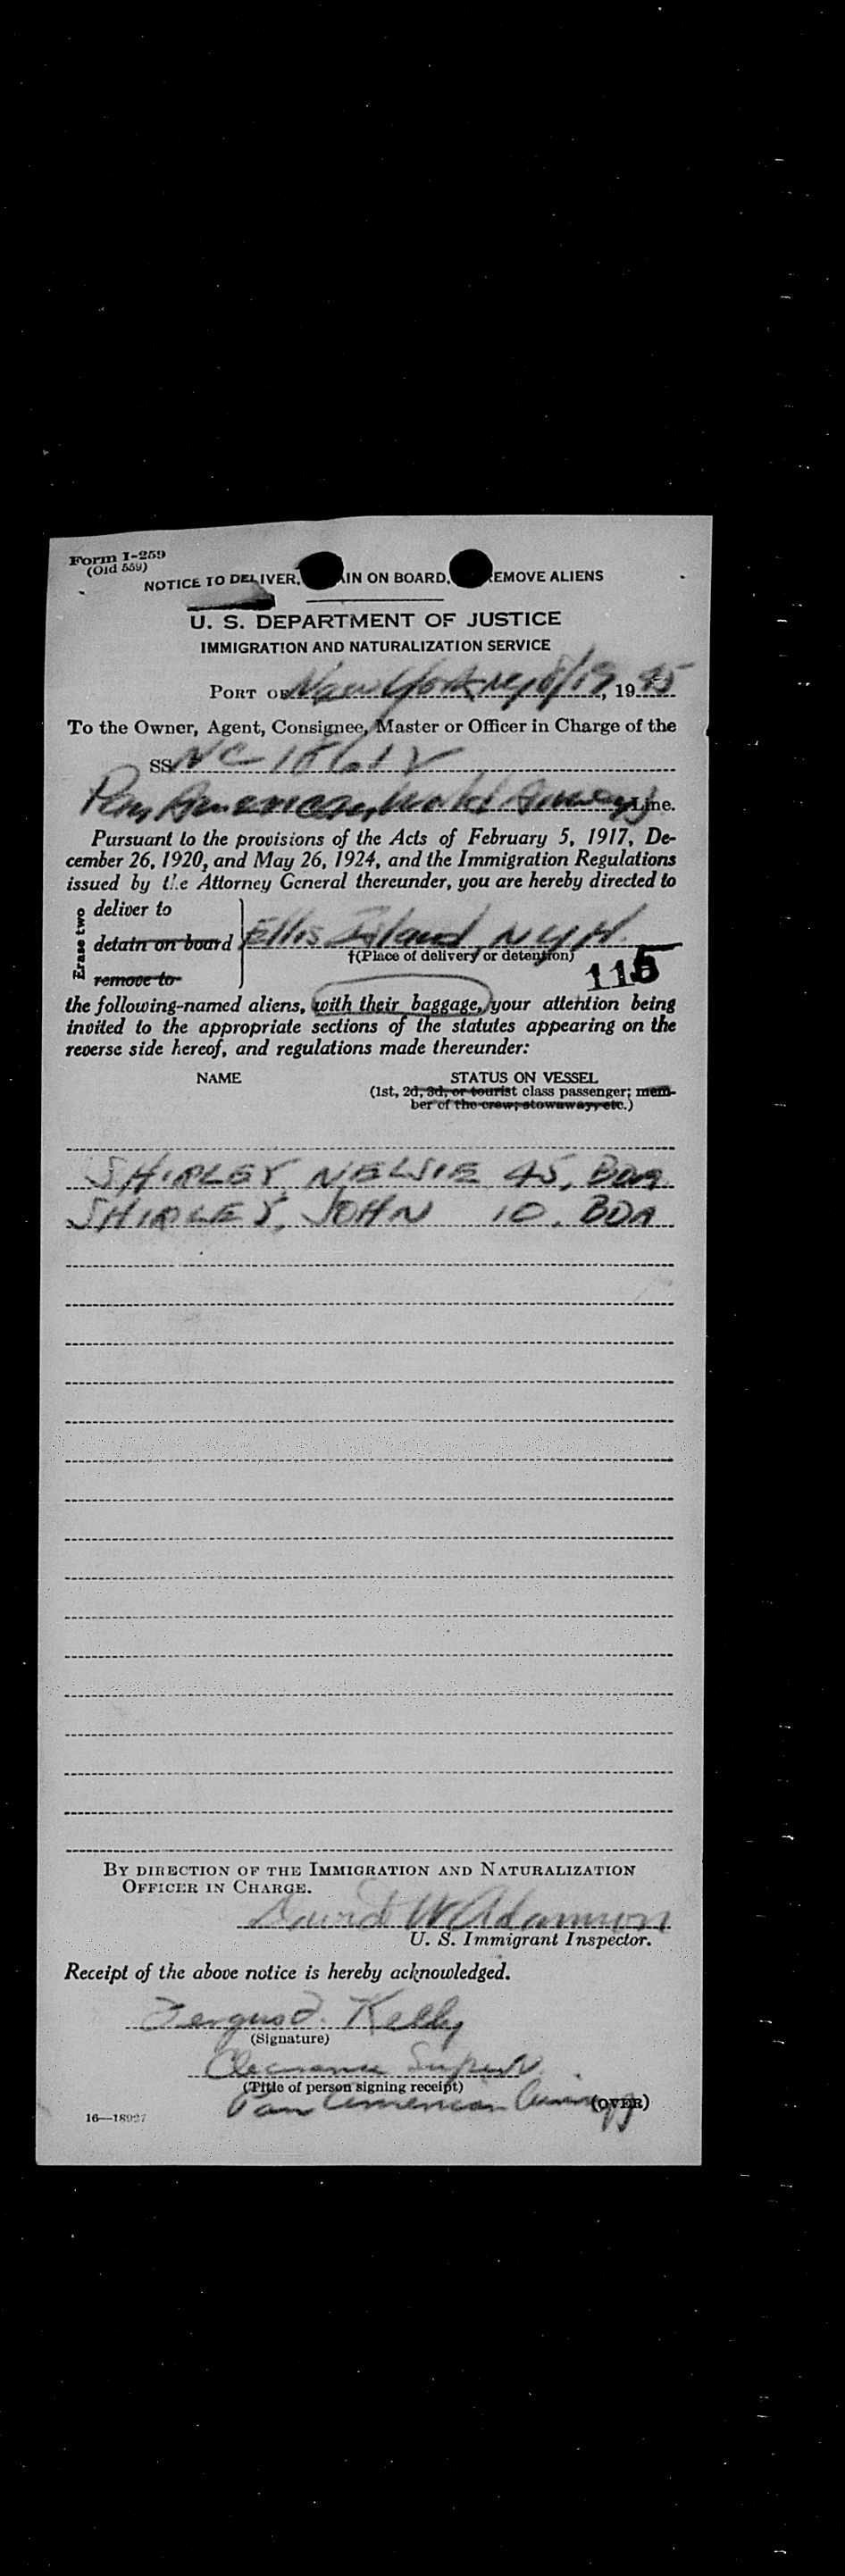 Form I-259
(Old 559)
NOTICE TO DELIVER, AIN ON BOARD, REMOVE ALIENS
U. S. DEPARTMENT OF JUSTICE
IMMIGRATION AND NATURALIZATION SERVICE
PORT OF New York NY 8/19, 1945
To the Owner, Agent, Consignee, Master or Officer in Charge of the
SS NC 18612
Pan American World Airways Line.
Pursuant to the provisions of the Acts of February 5, 1917, De-
cember 26, 1920, and May 26, 1924, and the Immigration Regulations
issued by the Attorney General thereunder, you are hereby directed to
Erase two
deliver to
detain on board Ellis Island NYH
†(Place of delivery or detention)
remove to
115
the following-named aliens, with their baggage, your attention being
invited to the appropriate sections of the statutes appearing on the
reverse side hereof, and regulations made thereunder:
NAME STATUS ON VESSEL
(1st, 2d, 3d, or tourist class passenger; mem-
ber of the crew; stowaway, etc.)
SHIRLEY, NELSIE 45, BDA
SHIRLEY, JOHN 10, BDA
BY DIRECTION OF THE IMMIGRATION AND NATURALIZATION
OFFICER IN CHARGE.
David W Adamson
U. S. Immigrant Inspector.
Receipt of the above notice is hereby acknowledged.
Fergus J. Kelly
(Signature)
Clearance Superv
(Title of person signing receipt)
Pan American Airways
(OVER)
16—18927